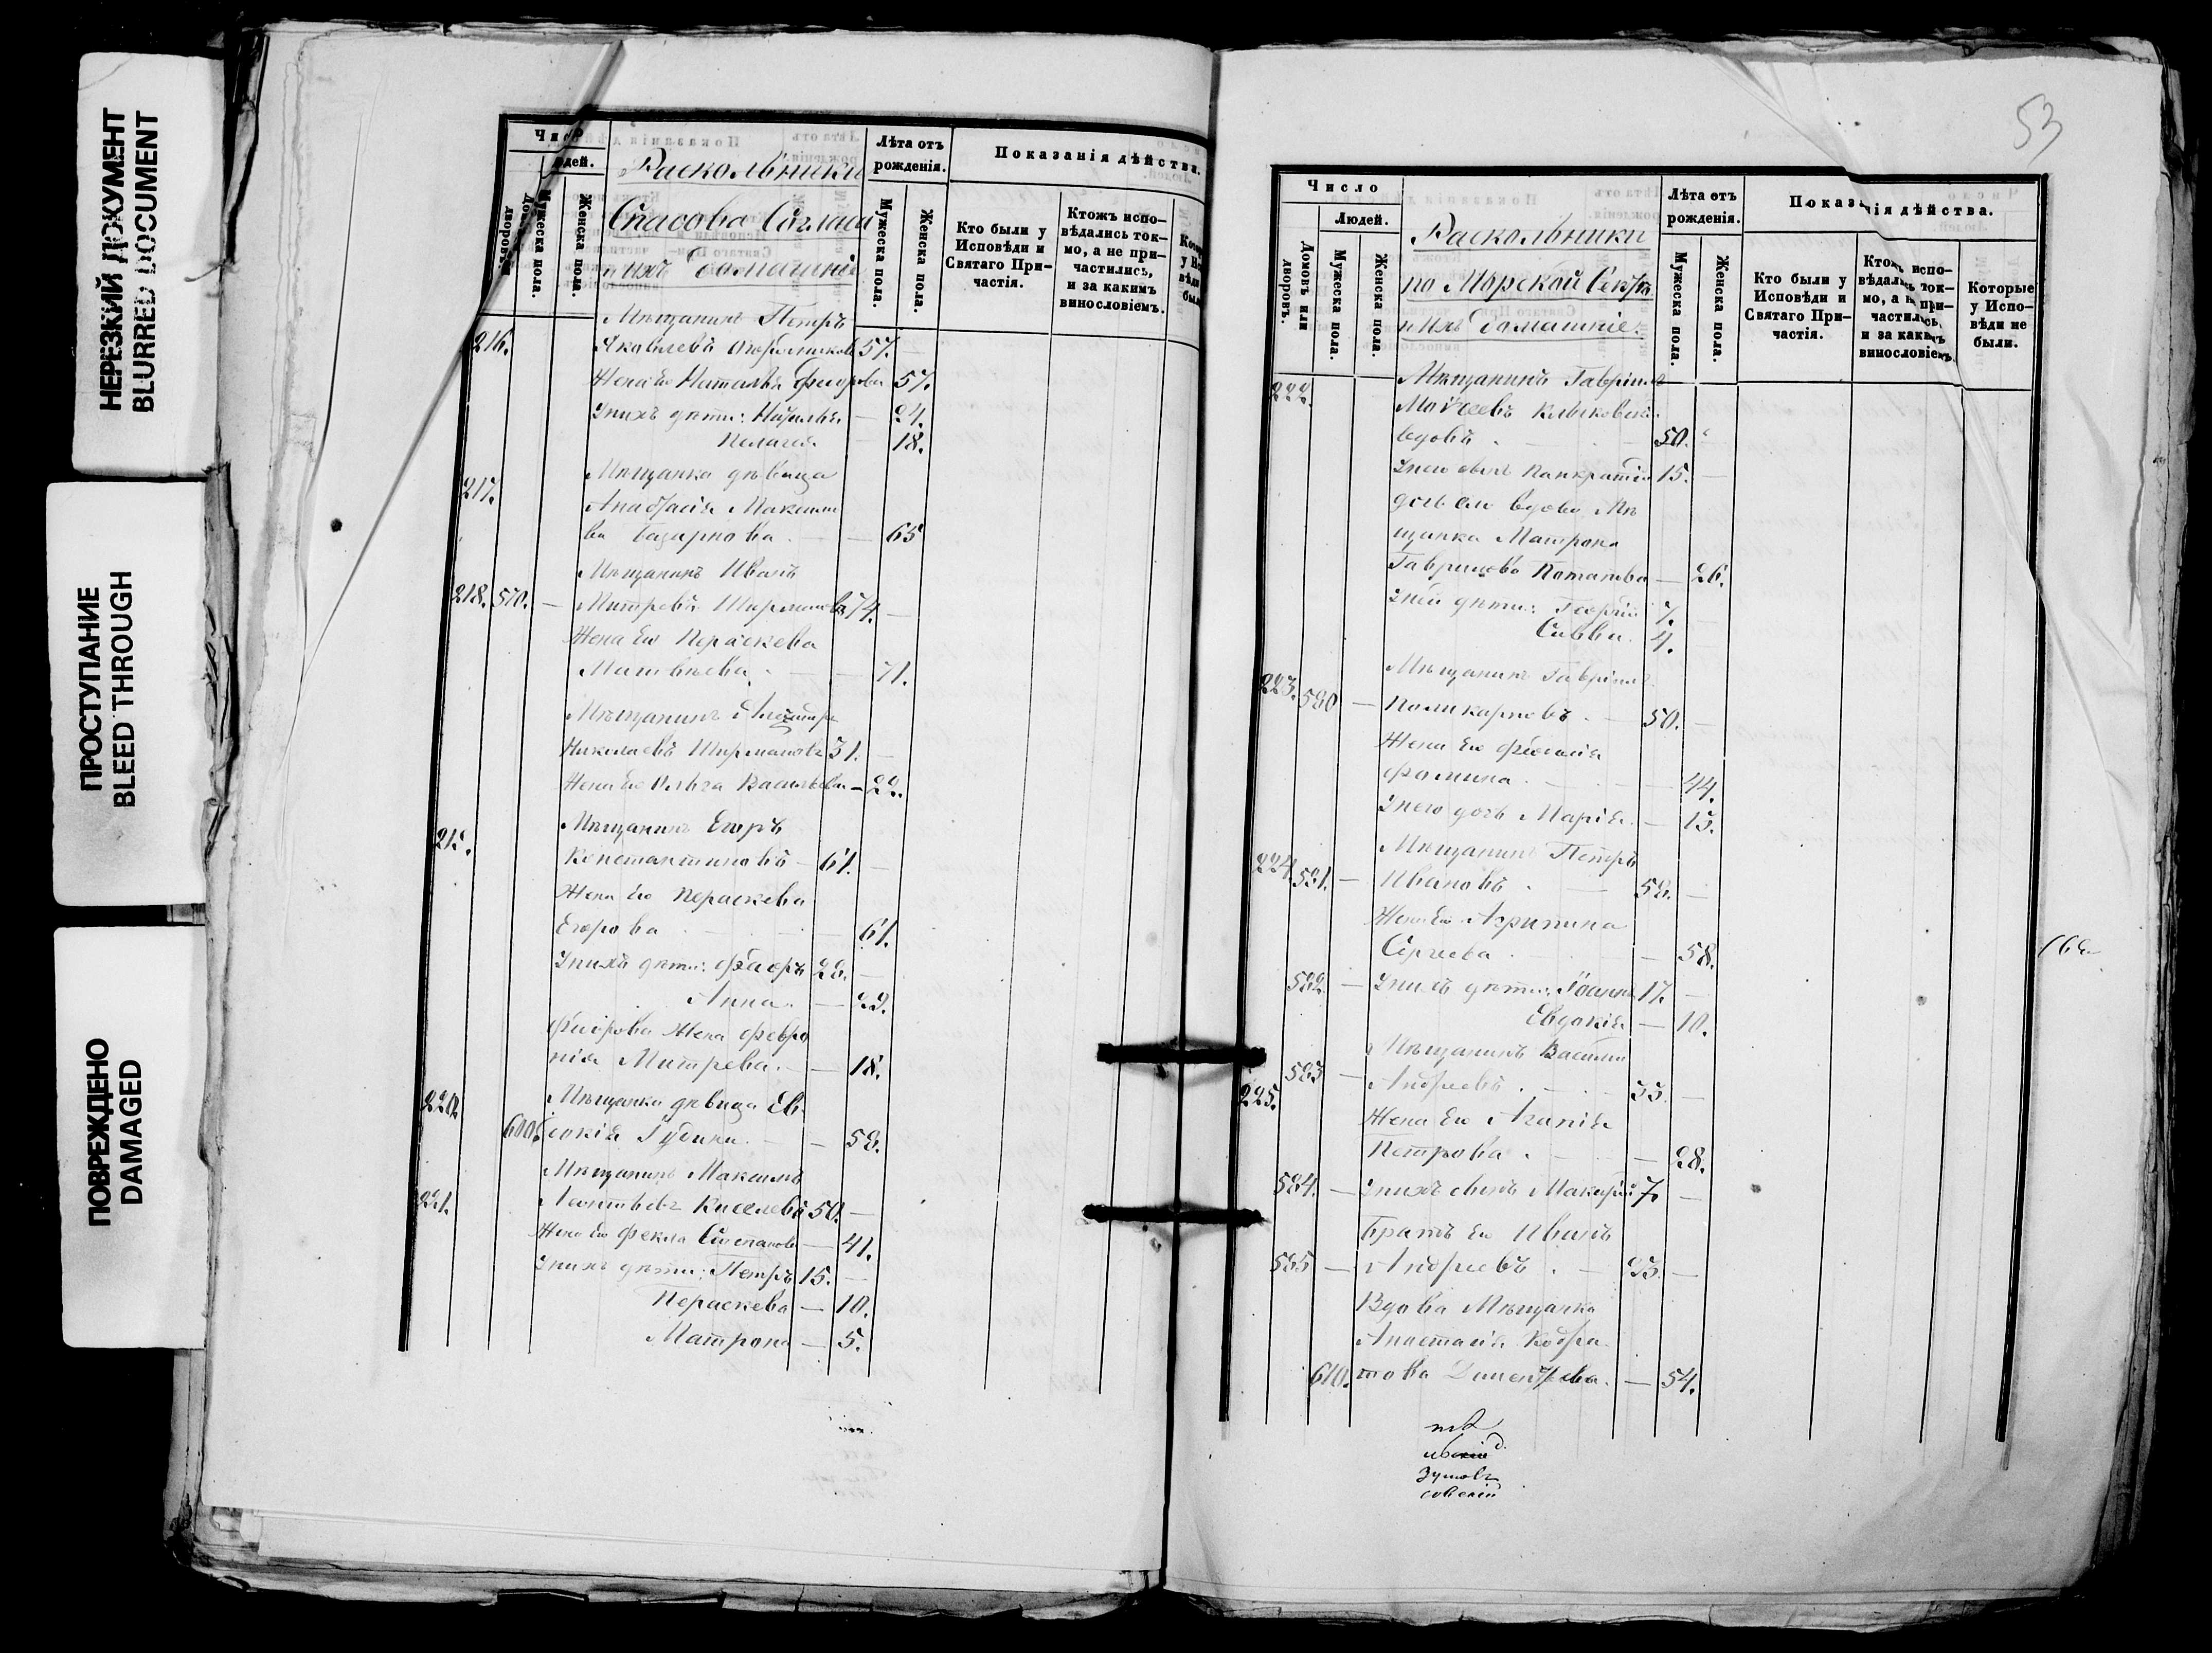 НЕРЕЗКИЙ ДОКУМЕНТ
BLURRED DOCUMENT
ПРОСТУПАНИЕ
BLEED THROUGH
ПОВРЕЖДЕНО
DAMAGED
Людей.
Домовъ или дворовъ.
Мужеска пола.
Женска пола.
Раскольники
Спасова Согласа
и ихъ домашніе
Лѣта отъ рожденія.
Мужеска пола.
Женска пола.
Показанія дѣйства.
Кто были у Исповѣди и Святаго Причастія.
Ктожъ исповѣдались токмо, а не причастились, и за какимъ винословіемъ.
Мѣщанинъ Петръ
216. Яковлевъ 57. —
Жена Его Наталья Федорова 57.
У нихъ дѣти: Наталья — 24.
Пелагея 18.
Мѣщанка дѣвица
217. Анастасія Максимо
ва Базарнова — — 65
Мѣщанинъ Иванъ
218. 570. — Митревъ Ширмановъ 74. —
Жена Его Пераскева
Матвѣева — — 71.
Мѣщанинъ Александръ
Николаевъ Ширмановъ 31. —
Жена Его Ольга Васильева — 22.
219. Мѣщанинъ Егоръ
Константиновъ — 61. —
Жена Его Пераскева
Егорова — 61.
У нихъ дѣти: Федоръ 22. —
Анна. — 22.
Федорова Жена Февро
нія Митрева. — — 18.
220. Мѣщанка дѣвица Ев
600. докія Губина. — — 58.
Мѣщанинъ Максимъ
221. Леонтьевъ Киселевъ 50. —
Жена Его Фекла Степанова — 41.
У нихъ дѣти: Петръ 15. —
Пераскева — 10.
Матрона — 5.
53
Число
Людей.
Домовъ или дворовъ.
Мужеска пола.
Женска пола.
Раскольники
по Морской Секты
и Ихъ домашніе.
Лѣта отъ рожденія.
Мужеска пола.
Женска пола.
Показанія дѣйства.
Кто были у Исповѣди и Святаго Причастія.
Ктожъ исповѣдались токмо, а не причастились, и за какимъ винословіемъ.
Которые у Исповѣди не были.
222. Мѣщанинъ Гавріилъ
Моисеевъ
вдовъ 50.
У него сынъ Панкратій 15. —
дочь его вдова Мѣ
щанка Матрона
Гаврилова Потапова — 26.
У ней дѣти: Георгій 7. —
Савва. 4. —
Мѣщанинъ Гавріилъ
223. 580 — Поликарповъ. — 50. —
Жена Его
Фомина — 44.
У него дочь Марія. — 15.
Мѣщанинъ Петръ
224. 581. — Ивановъ — 58. —
Жена Его Агрипина
Сергеева — 58.
582. — У нихъ дѣти: Іоаннъ 17. —
Евдокія — 10.
Мѣщанинъ Василій
225. 583 — Андреевъ 35. —
Жена Его Агапія
Петрова — 28.
584. — У нихъ сынъ Макарій 7. —
Братъ Его Иванъ
585 — Андреевъ — 25. —
Вдова Мѣщанка
Анастасія Кодра
610. това Дементьева. — 54.